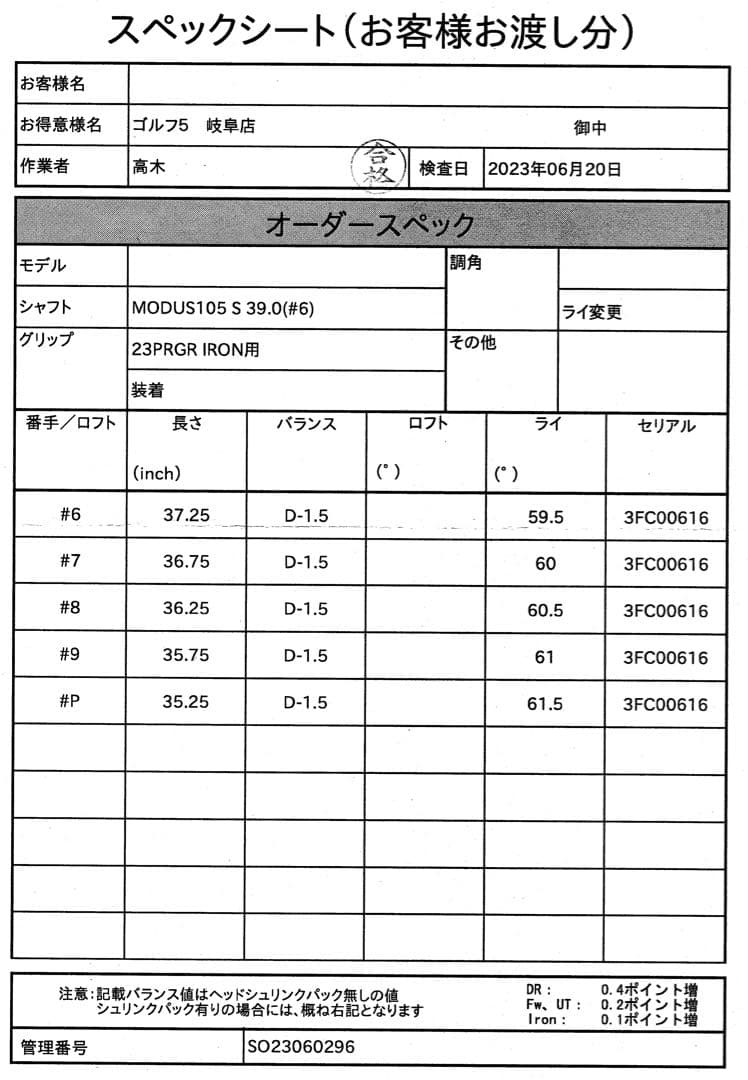 スペックシート(お客様お渡し分)
お客様名
お得意様名 ゴルフ5 岐阜店 御中
作業者 高木 合格 検査日 2023年06月20日
オーダースペック
モデル 調角
シャフト MODUS105 S 39.0(#6) ライ変更
グリップ 23PRGR IRON用 その他
装着
番手/ロフト 長さ バランス ロフト ライ セリアル
(inch) (°) (°)
#6 37.25 D-1.5 59.5 3FC00616
#7 36.75 D-1.5 60 3FC00616
#8 36.25 D-1.5 60.5 3FC00616
#9 35.75 D-1.5 61 3FC00616
#P 35.25 D-1.5 61.5 3FC00616
注意:記載バランス値はヘッドシュリンクパック無しの値 DR: 0.4ポイント増
シュリンクパック有りの場合には、概ね右記となります Fw、UT: 0.2ポイント増
Iron: 0.1ポイント増
管理番号 SO23060296